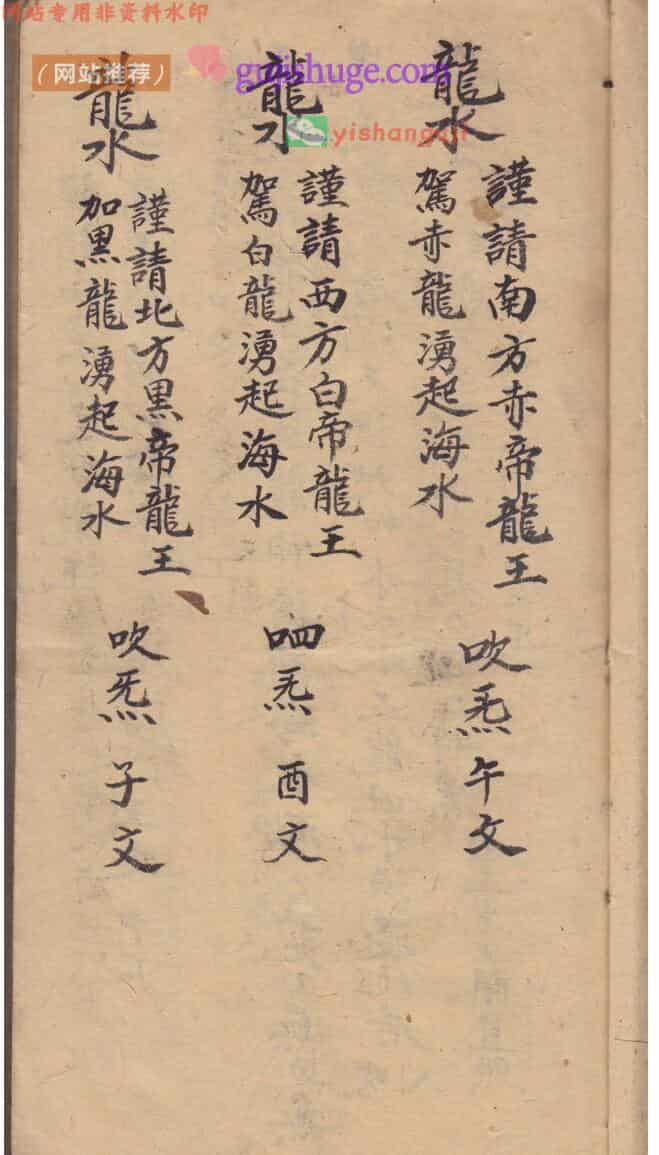 网站专用非资料水印
（网站推荐）
gujishuge.com
龍水
謹請南方赤帝龍王
駕赤龍湧起海水
吹炁午文
龍水
謹請西方白帝龍王
駕白龍湧起海水
呬炁酉文
龍水
謹請北方黑帝龍王
加黑龍湧起海水
吹炁子文